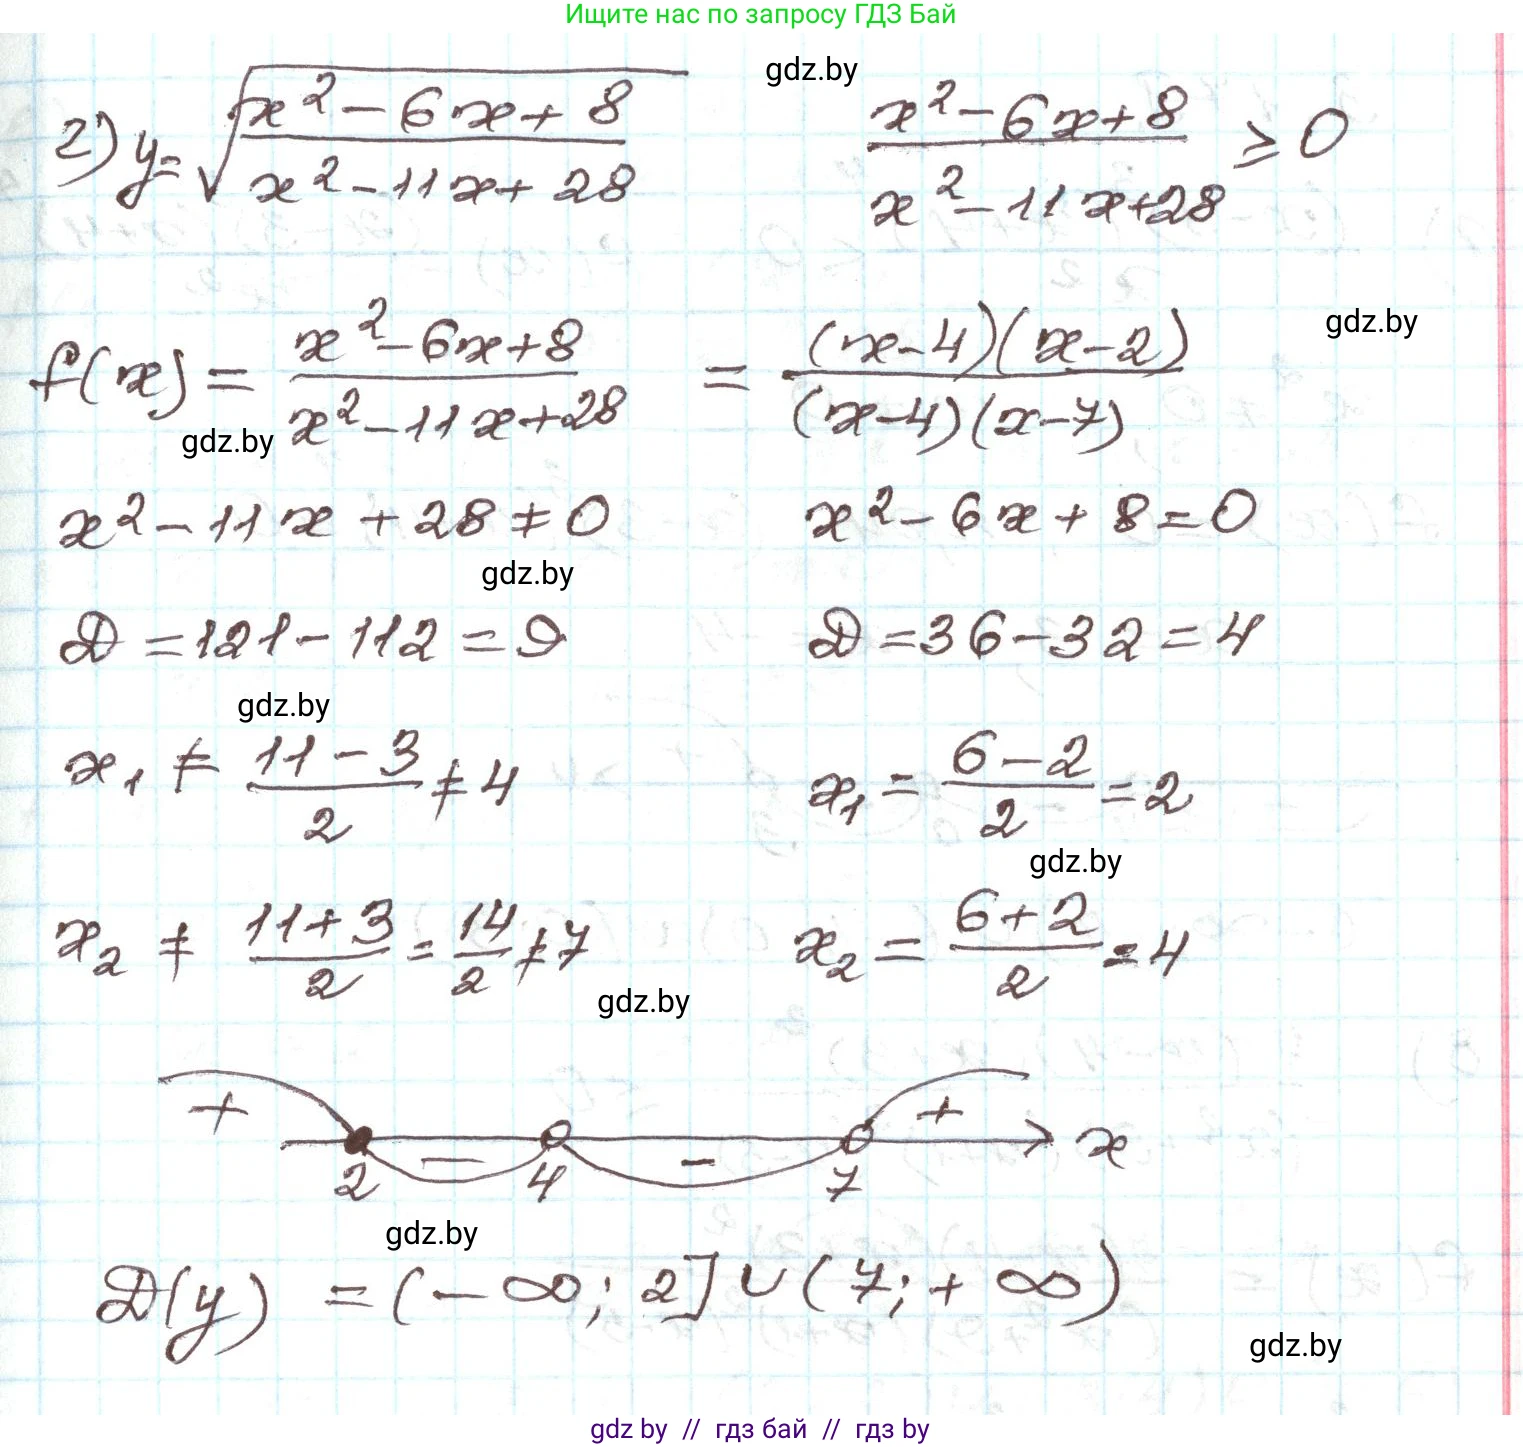 Ищите нас по запросу ГДЗ Бай
gdz.by
2) y = √((x² - 6x + 8)/(x² - 11x + 28))    (x² - 6x + 8)/(x² - 11x + 28) ≥ 0
gdz.by
f(x) = (x² - 6x + 8)/(x² - 11x + 28) = ((x - 4)(x - 2))/((x - 4)(x - 7))
gdz.by
x² - 11x + 28 ≠ 0    x² - 6x + 8 = 0
gdz.by
D = 121 - 112 = 9    D = 36 - 32 = 4
gdz.by
x₁ ≠ (11 - 3)/2 ≠ 4    x₁ = (6 - 2)/2 = 2
gdz.by
x₂ ≠ (11 + 3)/2 = 14/2 ≠ 7    x₂ = (6 + 2)/2 = 4
gdz.by
+ − − + x
2 4 7
gdz.by
D(y) = (-∞; 2] ∪ (7; +∞)
gdz.by
gdz by // гдз бай // гдз by